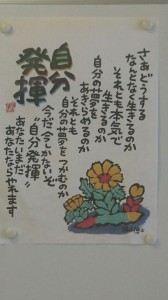 さあどうする
なんとなく生きるのか
それとも本気で
生きるのか
自分の夢を
あきらめるのか
それとも
自分の夢をつかむのか
今だ今しかないぞ
“自分発揮”
あなたいまだ
あなたならやれます
自分
発揮